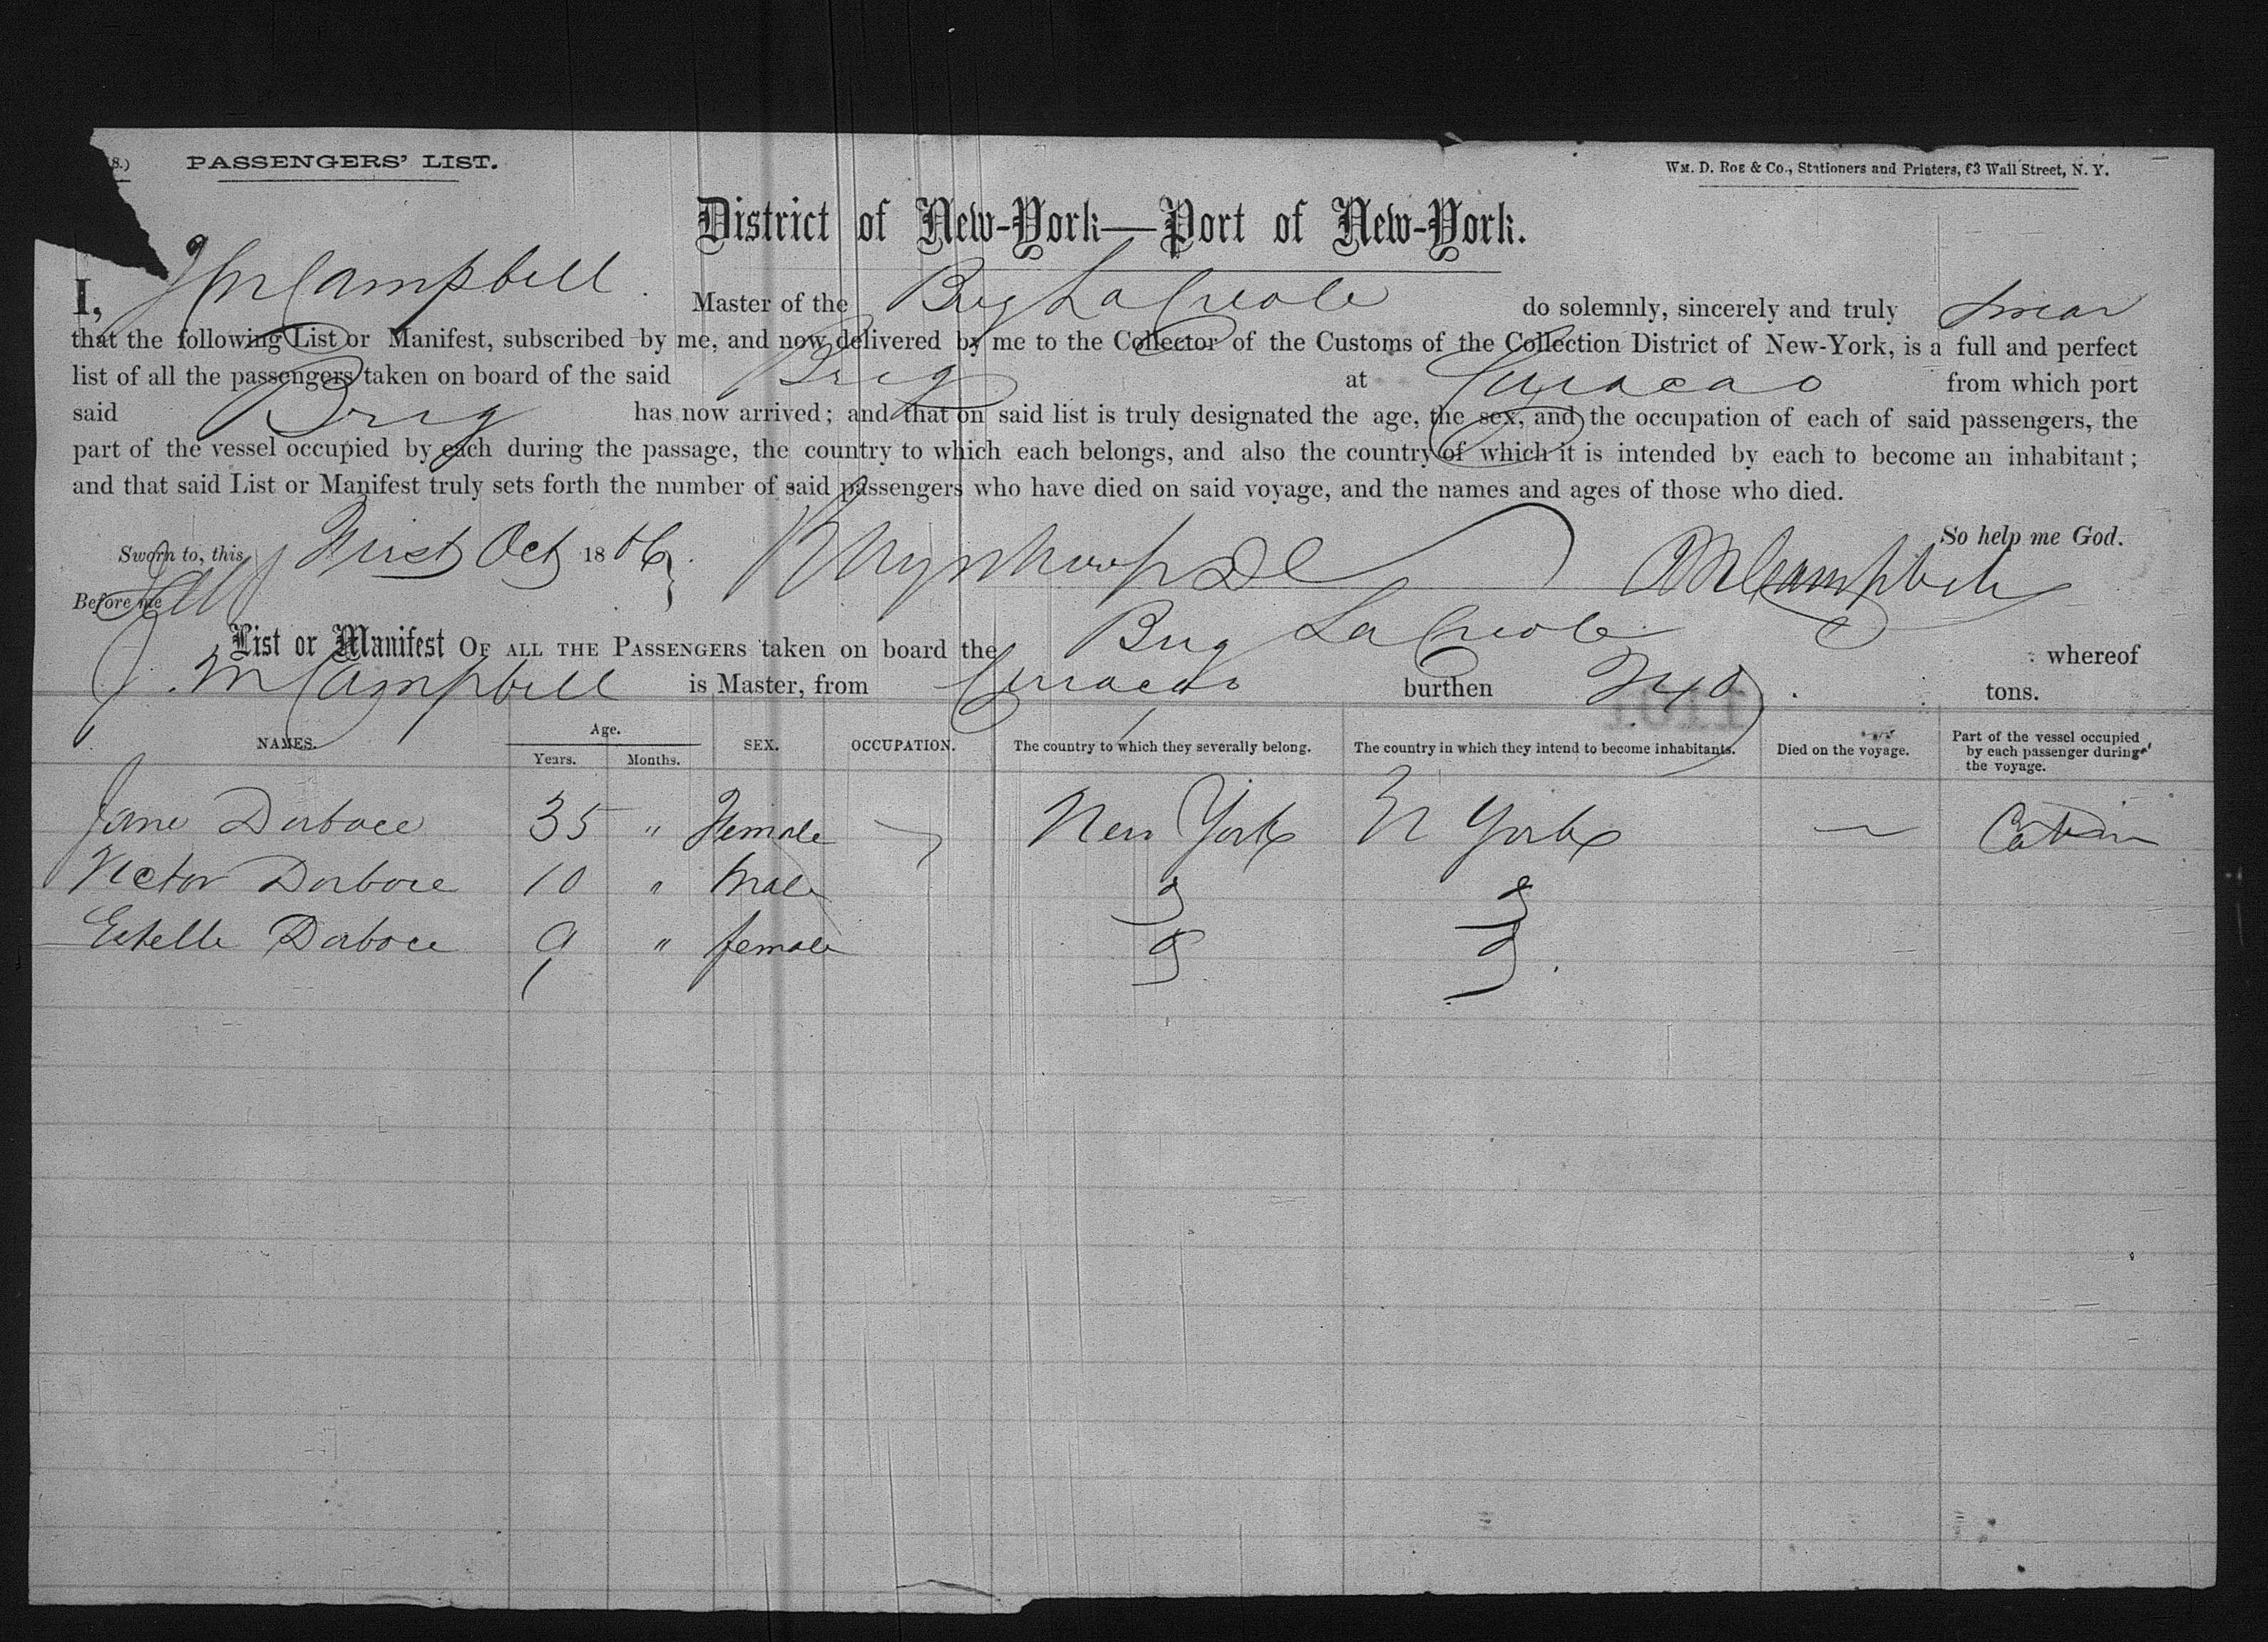 S.) PASSENGERS' LIST.
WM. D. ROE & CO., Stationers and Printers, 63 Wall Street, N. Y.
District of New-York—Port of New-York.
I, J M Campbell Master of the Brig La Creole do solemnly, sincerely and truly swear
that the following List or Manifest, subscribed by me, and now delivered by me to the Collector of the Customs of the Collection District of New-York, is a full and perfect
list of all the passengers taken on board of the said Brig at Curacao from which port
said Brig has now arrived; and that on said list is truly designated the age, the sex, and the occupation of each of said passengers, the
part of the vessel occupied by each during the passage, the country to which each belongs, and also the country of which it is intended by each to become an inhabitant;
and that said List or Manifest truly sets forth the number of said passengers who have died on said voyage, and the names and ages of those who died.
So help me God.
Sworn to, this First Oct 1866 J M Campbell
Before me
List or Manifest OF ALL THE PASSENGERS taken on board the Brig La Creole whereof
J. M Campbell is Master, from Curacao burthen 240 tons.
NAMES. Age. Years. Months. SEX. OCCUPATION. The country to which they severally belong. The country in which they intend to become inhabitants. Died on the voyage. Part of the vessel occupied by each passenger during the voyage.
Jane 35 " Female New York N York — Cabin
Victor 10 " Male
Estelle 9 " female